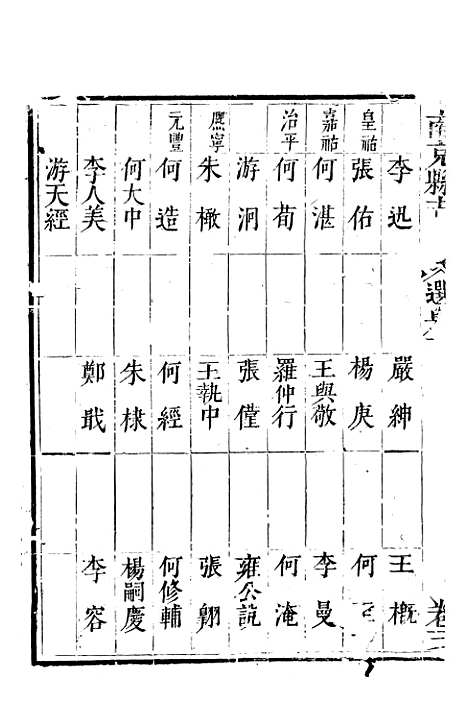 南充縣志
選舉
卷三
李迅 嚴紳 王概
皇祐 張佑 楊庚 何
嘉祐 何湛 王與敬 李曼
治平 何荀 羅仲行 何淹
游泂 張儻 雍公說
熈寧 朱橄 王執中 張翱
元豐 何造 何經 何修輔
何大中 朱棣 楊嗣慶
李人美 鄭戩 李容
游天經